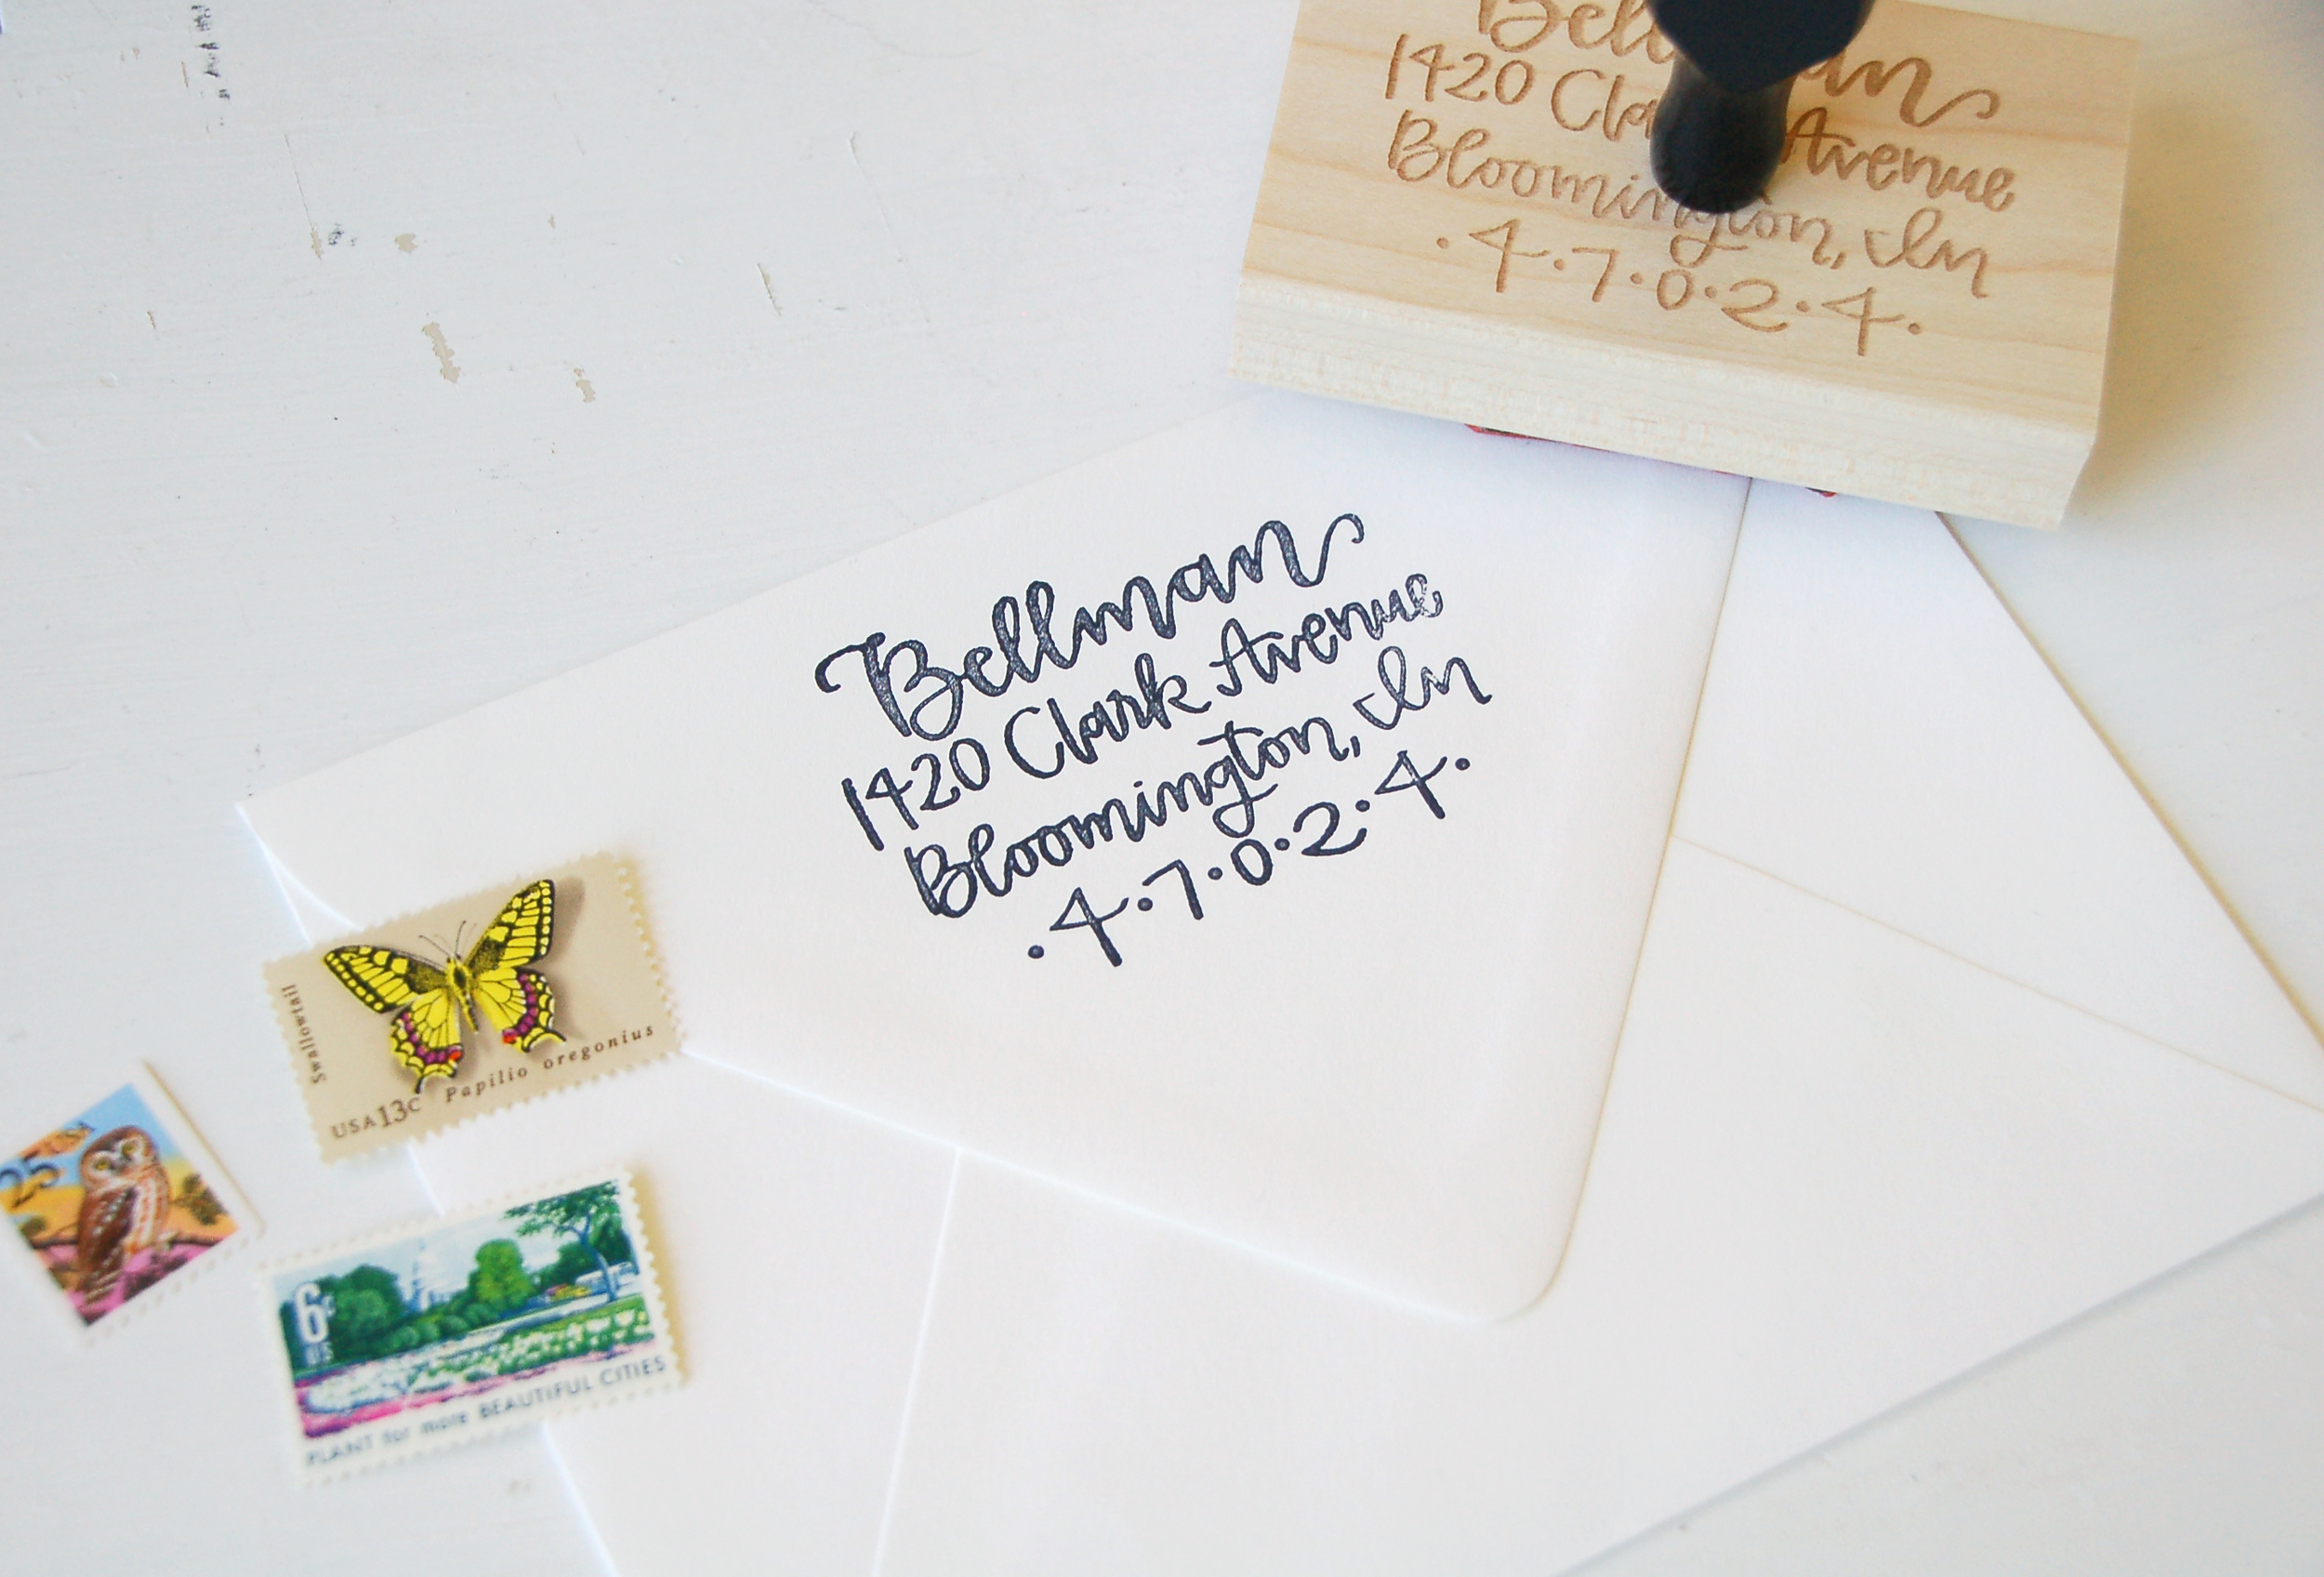 Bellman
1420 Clark Avenue
Bloomington, In
·4·7·0·2·4·
1420 Avenue
Bloomington, In
·4·7·0·2·4·
Swallowtail
Papilio oregonius
USA13c
25 USA
6¢
US
PLANT for more BEAUTIFUL CITIES